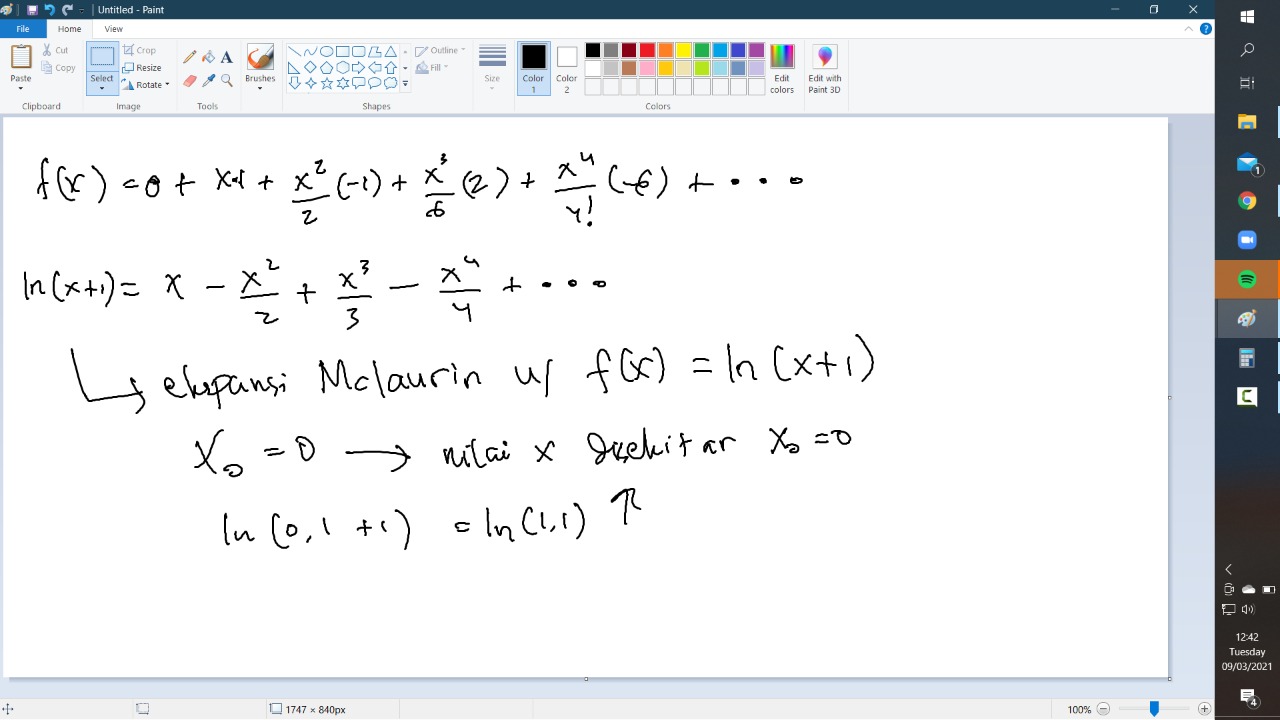 Untitled - Paint
File Home View
Paste Cut Copy Select Crop Resize Rotate Brushes Outline Fill Size Color 1 Color 2 Edit colors Edit with Paint 3D
Clipboard Image Tools Shapes Colors
f(x) = 0 + x·1 + x²/2 (-1) + x³/6 (2) + x⁴/4! (-6) + ...
ln(x+1) = x - x²/2 + x³/3 - x⁴/4 + ...
ekspansi Mclaurin u/ f(x) = ln(x+1)
x₀ = 0 → nilai x disekitar x₀ = 0
ln(0,1 + 1) = ln(1,1) ↑
1747 × 840px 100%
1
12:42
Tuesday
09/03/2021
4